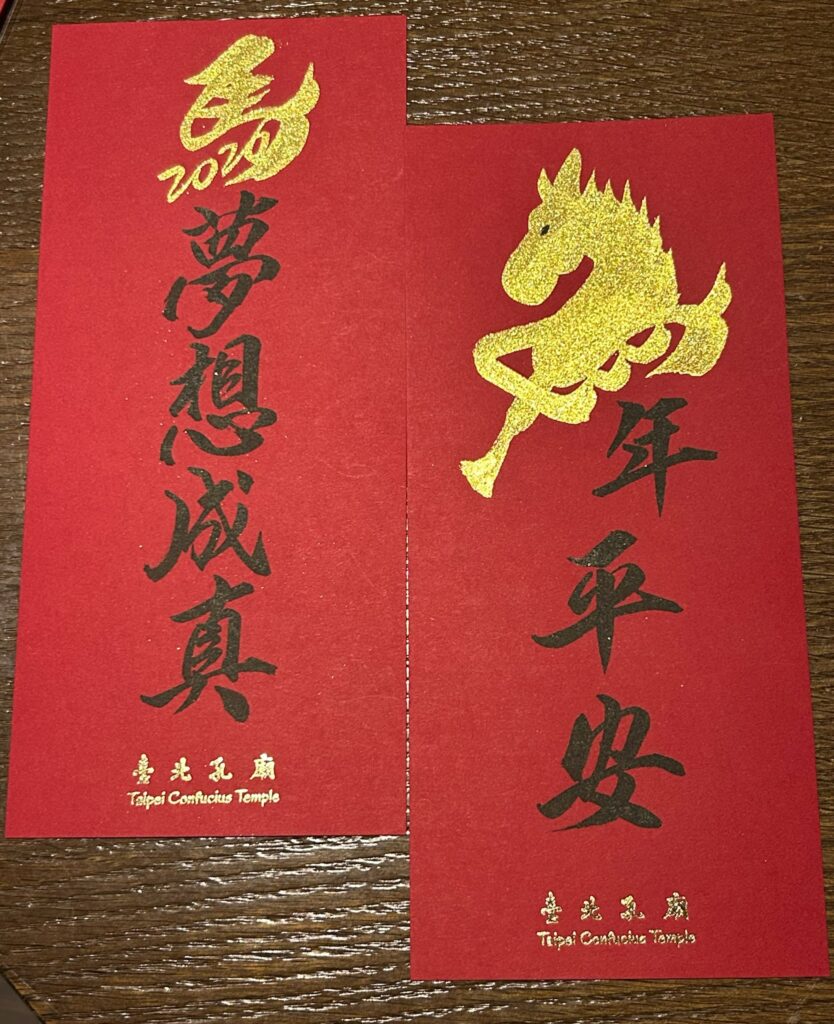 馬
2026
夢想成真
臺北孔廟
Taipei Confucius Temple
年平安
臺北孔廟
Taipei Confucius Temple